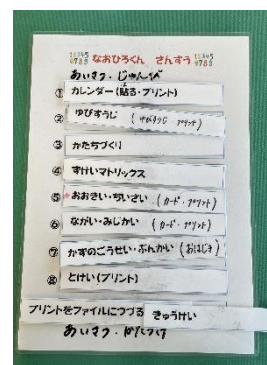 12345 6789 なおひろくん さんすう 12345 6789
あいさつ・じゅんび
① カレンダー(貼る・プリント)
② ゆびすうじ (ゆびすうじ プリント)
③ かたちづくり
④ ずけいマトリックス
⑤ おおきい・ちいさい (カード・プリント)
⑥ ながい・みじかい (カード・プリント)
⑦ かずのごうせい・ぶんかい (おはじき)
⑧ とけい(プリント)
プリントをファイルにつづる きゅうけい
あいさつ・かたづけ